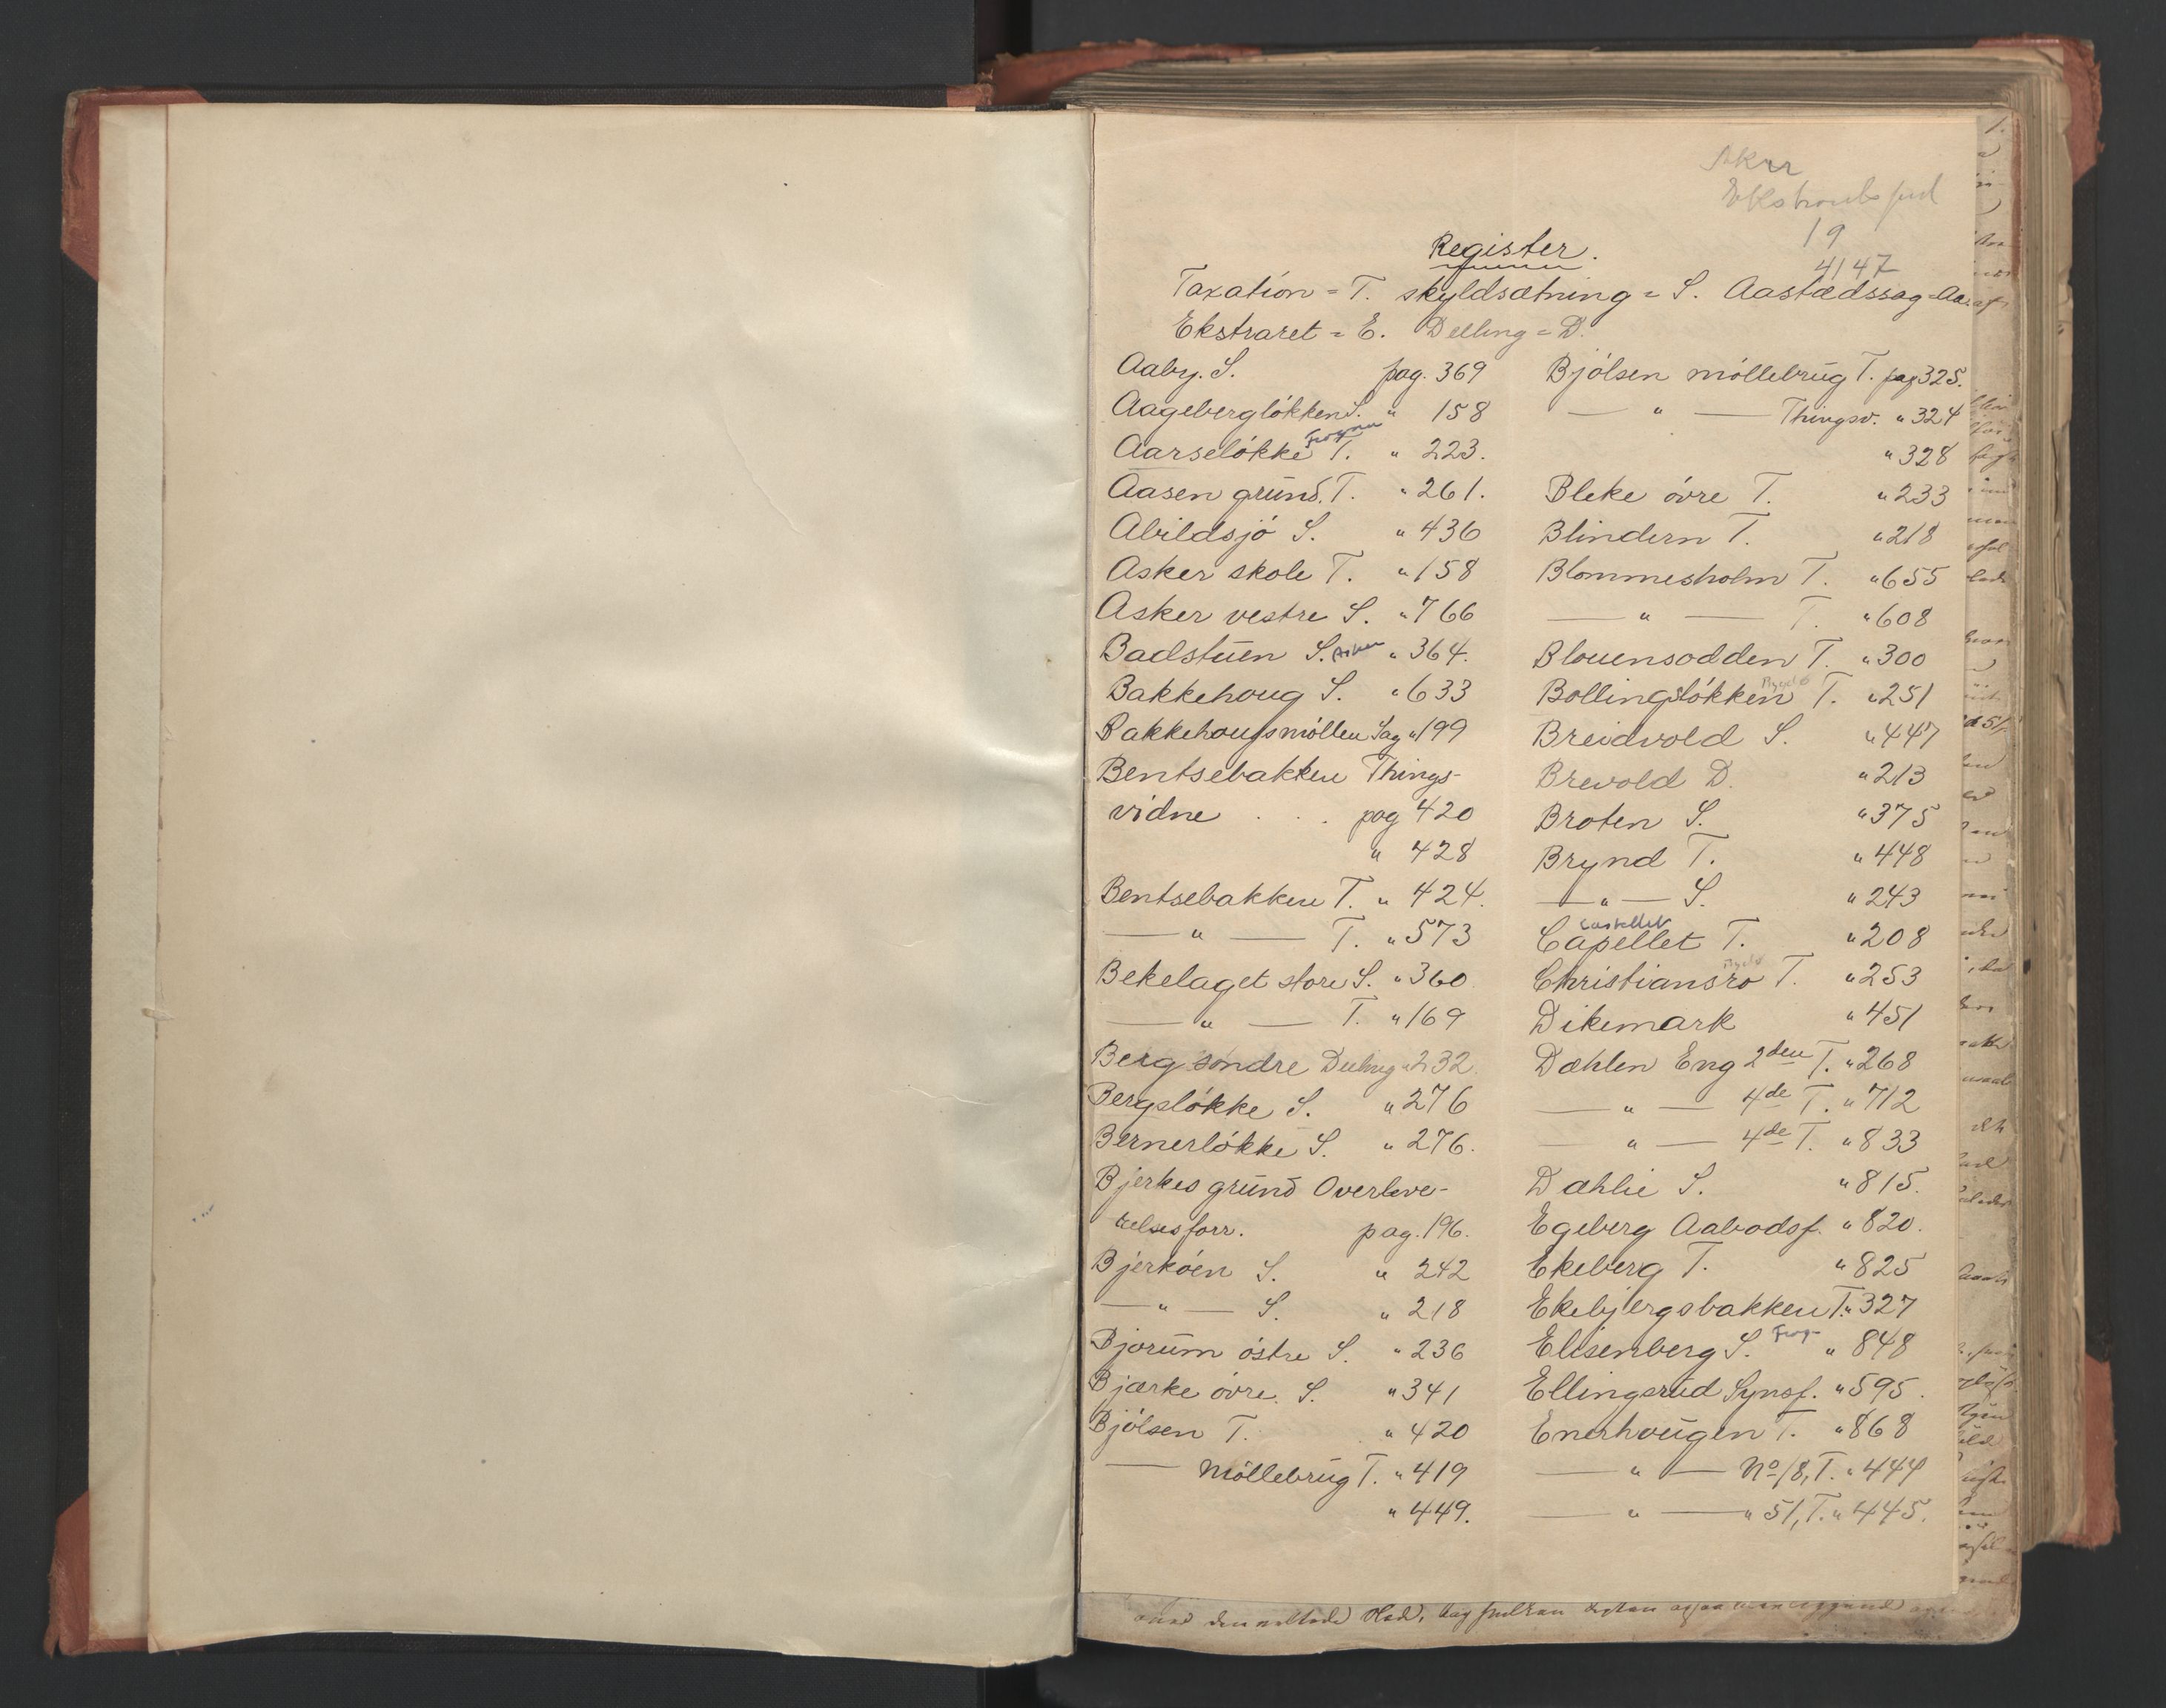 19
4147
Register.
Taxation = T. skyldsætning = S. Aastædssag = Aa.
Ekstraret = E. Deeling = D.
Aaby. S. pag. 369
Aagebergløkken S. " 158
Frogner
Aarseløkke T. " 223.
Aasen grund. T. " 261.
Abildsjø S. " 436
Asker skole T. " 158
Asker vestre S. " 766
Badstuen S. Asker " 364.
Bakkehoug S. " 633
Bakkehougsmøllen Sag " 199
Bentsebakken Things-
vidne . . . pag 420
" 428
Bentsebakken T. " 424.
— " — T. " 573
Bekelaget store S. " 360
— " — T. " 169
Berg søndre Deeling " 232.
Bergsløkke S. " 276
Bernerløkke S. " 276.
Bjerkes grund Overleve-
relsesforr. pag. 196.
Bjerkøen S. " 242
— " — S. " 218
Bjorum østre S. " 236
Bjærke øvre S. " 341
Bjølsen T. " 420
— Møllebrug T. " 419
" 449.
Bjølsen møllebrug T. pag 325.
— " — Thingsv. " 324
" 328
Bleke øvre T. " 233
Blindern T. " 218
Blommesholm T. " 655
— " — T. " 608
Blouensodden T. " 300
Bygdø
Bollingsløkken T. " 251
Breidvold S. " 447
Brevold D. " 213
Broten S. " 375
Brynd T. " 448
— " — S. " 243
Castellet
Capellet T. " 208
Bygdø
Christiansro T. " 253
Dikemark " 451
Dæhlen Eng 2den T. " 268
— " — 4de T. " 712
— " — 4de T. " 833
Dæhlie S. " 815.
Egeberg Aabodsf. " 820.
Ekeberg T. " 825
Ekebjergsbakken T. " 327
Elisenberg S. Frog- " 848
Ellingsrud Synsf. " 595.
Enerhougen T. " 868
— " — No 18, T. " 444
— " — " 51, T. " 445.